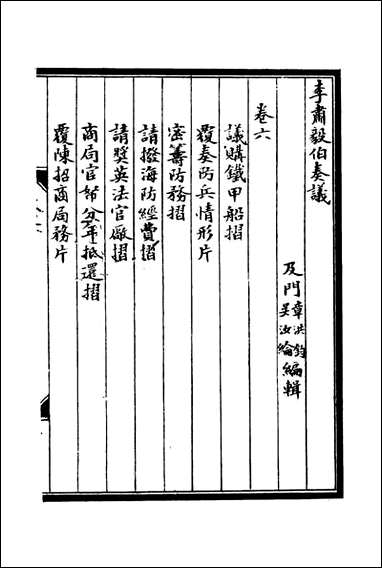 李肅毅伯奏議
及門章洪鈞吳汝綸編輯
卷六
議購鐵甲船摺
覆奏防兵情形片
密籌防務摺
請撥海防經費摺
請獎英法官廠摺
商局官帑分年抵還摺
覆陳招商局務片